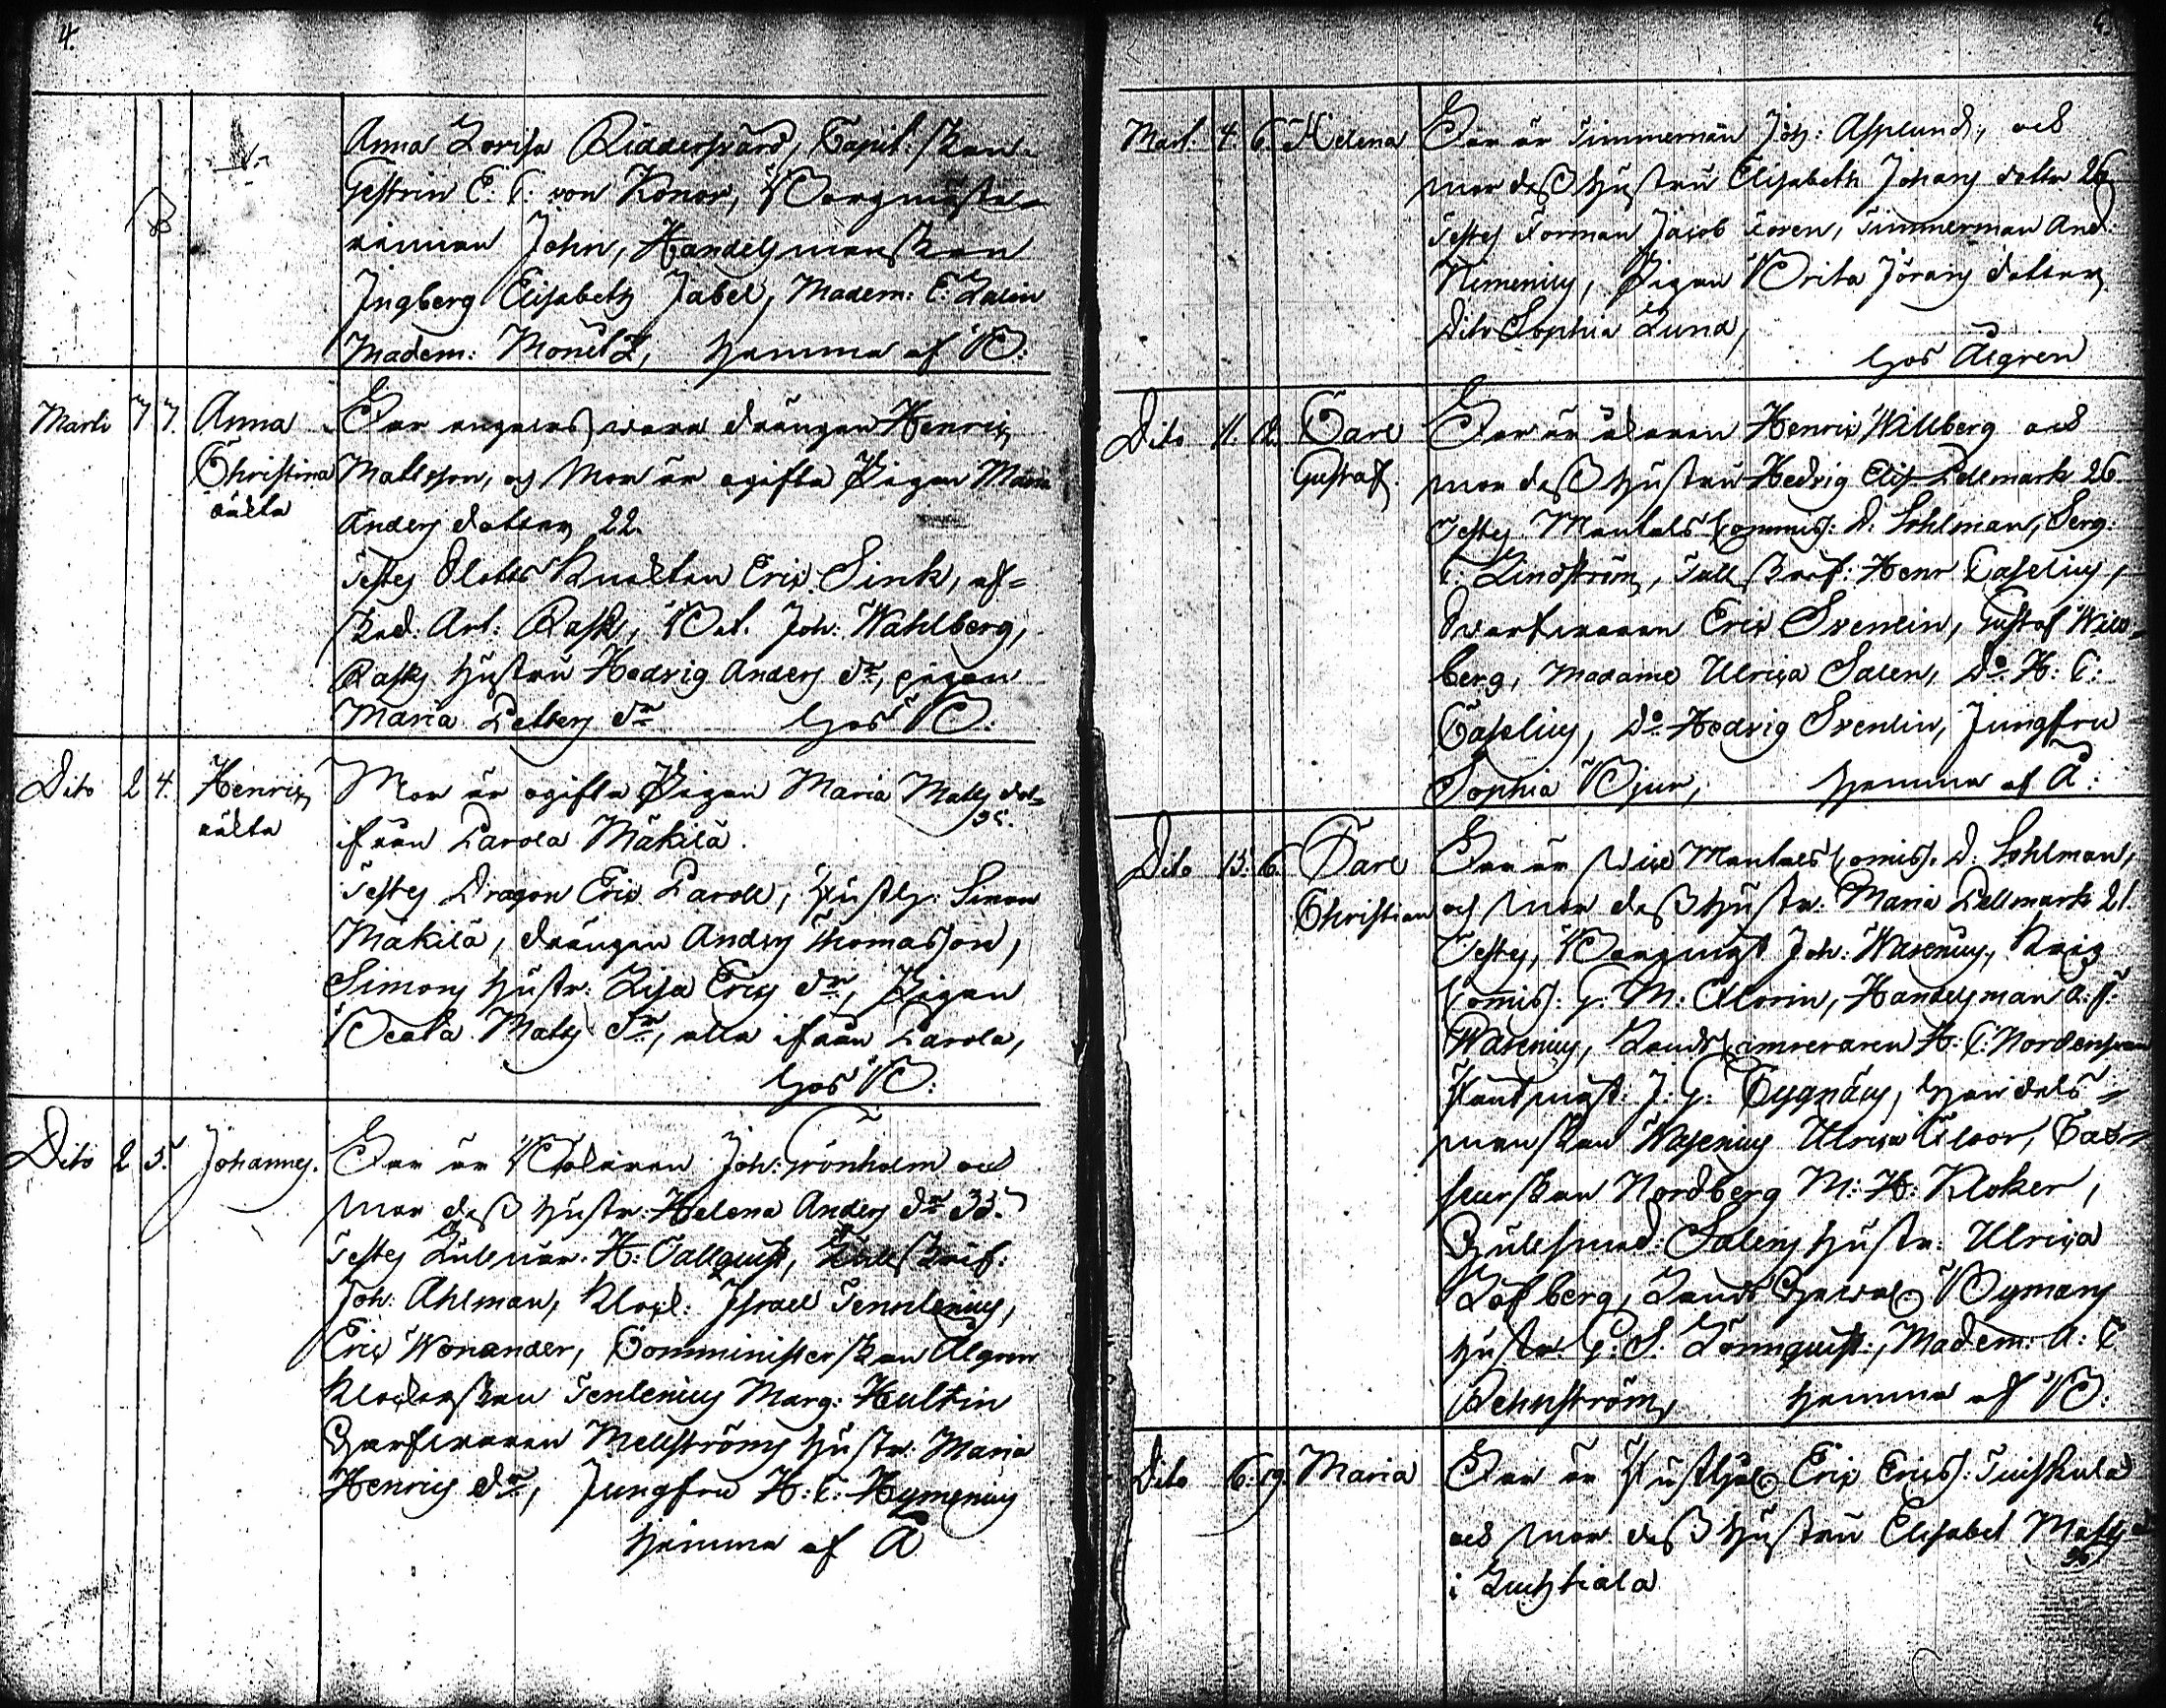 4.
Anna Lovisa Riddersvärd, Capit: skan
Gestrin C: C: von Konow, Borgmästa-
rinnan John, Handelsmanskan
Ingberg Elisabeth Jabel, Madem: C: Zalin
Madem: Monell, hemma af B:
Marti 7 7. Anna Far angaves wara drängen Henric
Christina Mattsson, och Mor är ogifta Pigan Maria
oäkta
Anders dotter, 22.
Testes Slotts Knekten Eric Sink, af-
sked. Art: Rask, Bat. Joh: Wahlberg,
Rasks hustru Hedvig Anders dr, pigan
Maria Petters dr hos B:
Dito 2 4. Henric Mor är ogifta Pigan Maria Matts dot-
oäkta ifrån Parola Mäkilä. 35.
Testes Dragon Eric Paroll, Husb: Simon
Mäkilä, drängen Anders Thomasson,
Simons hustr: Lisa Erics dr, Pigan
Beata Matts dr, alla ifrån Parola,
hos B:
Dito 2 5. Johannes. Far är Joh: Grönholm och
Mor dess hustr: Helena Anders dr 33.
Testes H: Callquist, Tullskrif:
Joh: Ahlman, Klock: Israel Tennlenius,
Eric Wonander, Comministerskan Ålgren
Klockarskan Tenlenius Marg: Hultin
Garfvaren Mellströms hustr: Maria
Henrics dr, Jungfru H: C: Hymenius
hemma af Å
Mart. 4. 6. Helena Far är Timmerman Joh: Asplund, och
mor dess hustru Elisabeth Johans dotter 26
Testes Forman Jacob Toren, Timmerman And:
Nimenius, Pigan Brita Jörans dotter,
Dito Sophia Lund,
hos Ålgren
Dito 11. 12. Carl Far är åkaren Henric Willberg och
Gustaf. mor dess hustru Hedvig Elis Pellmark 26.
Testes Mantals Commis: D. Sohlman, Serg:
C. Lindström, Tullskrif: Henr Caselius,
Svarfvaren Eric Svenlin, Gustaf Will-
berg, Madame Ulrica Salen, Do H: C:
Caselius, Do Hedvig Svenlin, Jungfru
Sophia Bjur, hemma af Å:
Dito 15. 16. Carl Far är Vice Mantals Comis: D: Sohlman,
Christian och Mor dess hustr: Maria Pellmark 21.
Testes, Borgmäst Joh: Wasenius, Krigs
Comis: G: M: Clorin, Handelsman A: J:
Wasenius, Lands Camreraren H: C: Nordensvan
J: G: Cygnæus, Handels-
manskan Wasenius Ulrica Cloor, Cas-
seurskan Nordberg M: H: Kloker,
Gullsmed: Salens hustr: Ulrica
Löfberg, Lands Bymans
hustr: G: S: Lönnquist, Madem: A: C
Rehnström, hemma af B:
Dito 16. 19. Maria Far är Eric Erics: Tuiskula
och mor dess hustru Elisabet Matts d
36
i Luhtiala